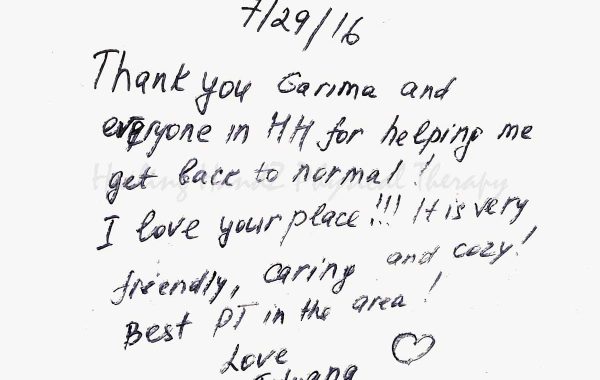 7/29/16
Thank you Garima and
everyone in HH for helping me
get back to normal!
Healing HandZ Physical Therapy
I love your place!!! It is very
friendly, caring and cozy!
Best PT in the area!
Love